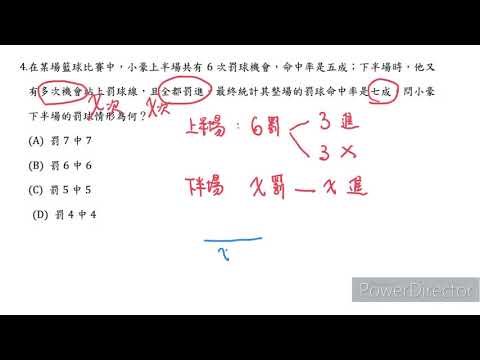 4.在某場籃球比賽中，小豪上半場共有 6 次罰球機會，命中率是五成；下半場時，他又
有多次機會站上罰球線，且全都罰進，最終統計其整場的罰球命中率是七成，問小豪
x次 x次
下半場的罰球情形為何？
(A) 罰 7 中 7
(B) 罰 6 中 6
(C) 罰 5 中 5
(D) 罰 4 中 4
上半場：6罰 3 進
3 ×
下半場 x罰 — x 進
x
PowerDirector